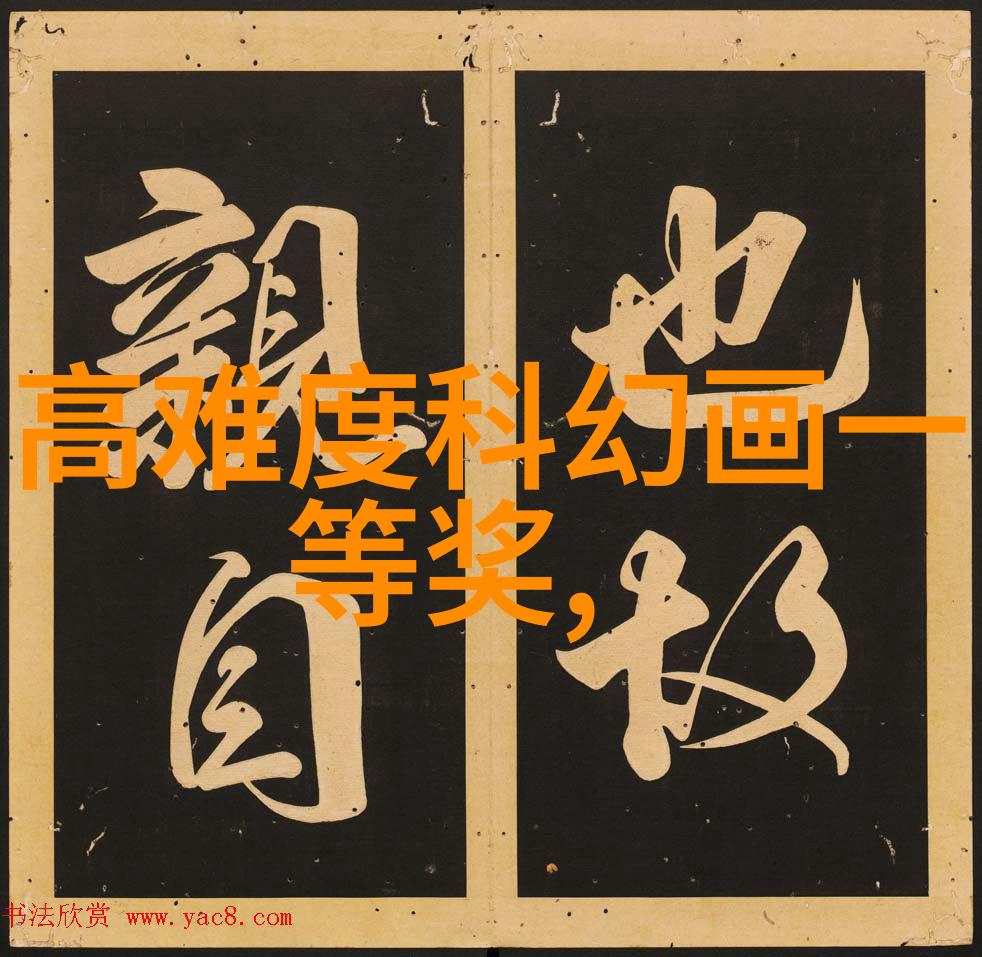 也故
親自
高难度科幻画一
等奖,
书法欣赏 www.yac8.com